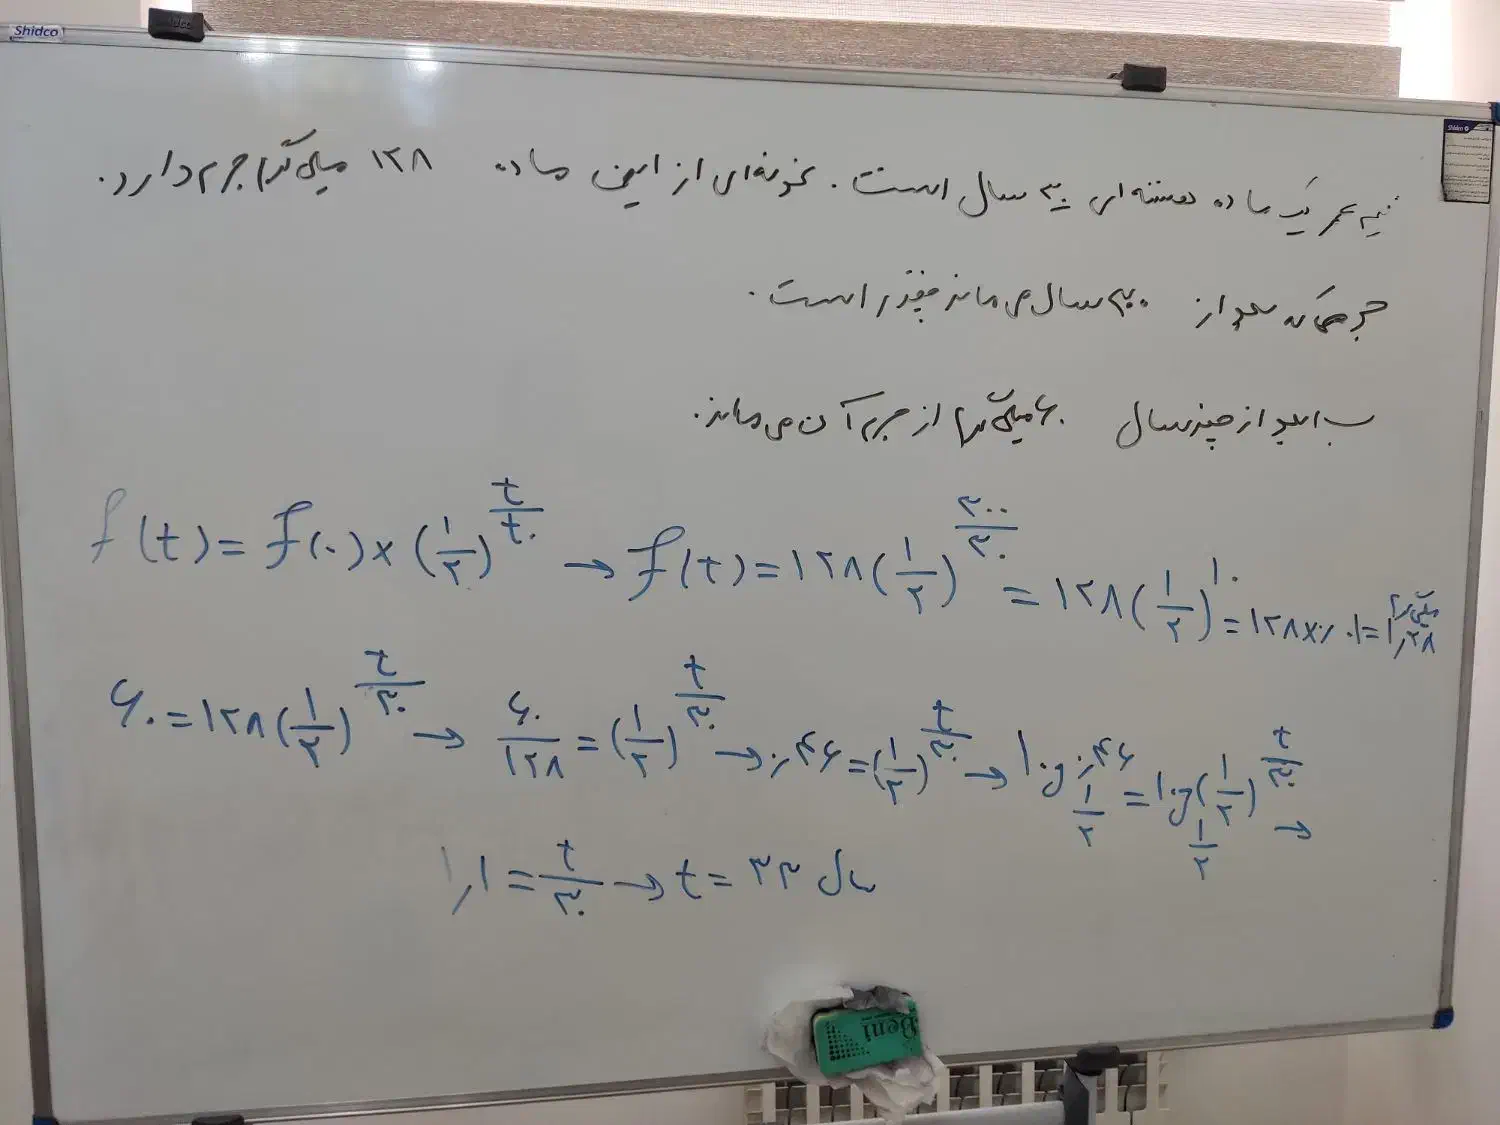 Shidco
نیم عمر یک ماده هسته‌ای ۳۰ سال است. نمونه‌ای از این ماده ۱۲۸ میلی گرم جرم دارد.
جرمی که بعد از ۳۰۰ سال می ماند چقدر است.
ب) بعد از چند سال ۶۰ میلی گرم از جرم آن می ماند.
f(t) = f(۰) × (۱/۲)^(t/t۰) → f(t) = ۱۲۸(۱/۲)^(۳۰۰/۳۰) = ۱۲۸(۱/۲)^۱۰ = ۱۲۸×۰٫۰۱ = ۱٫۲۸ میلی گرم
۶۰ = ۱۲۸(۱/۲)^(t/۳۰) → ۶۰/۱۲۸ = (۱/۲)^(t/۳۰) → ۰٫۴۶ = (۱/۲)^(t/۳۰) → log_(۱/۲) ۰٫۴۶ = log_(۱/۲) (۱/۲)^(t/۳۰) →
۱٫۱ = t/۳۰ → t = ۳۳ سال
Beni